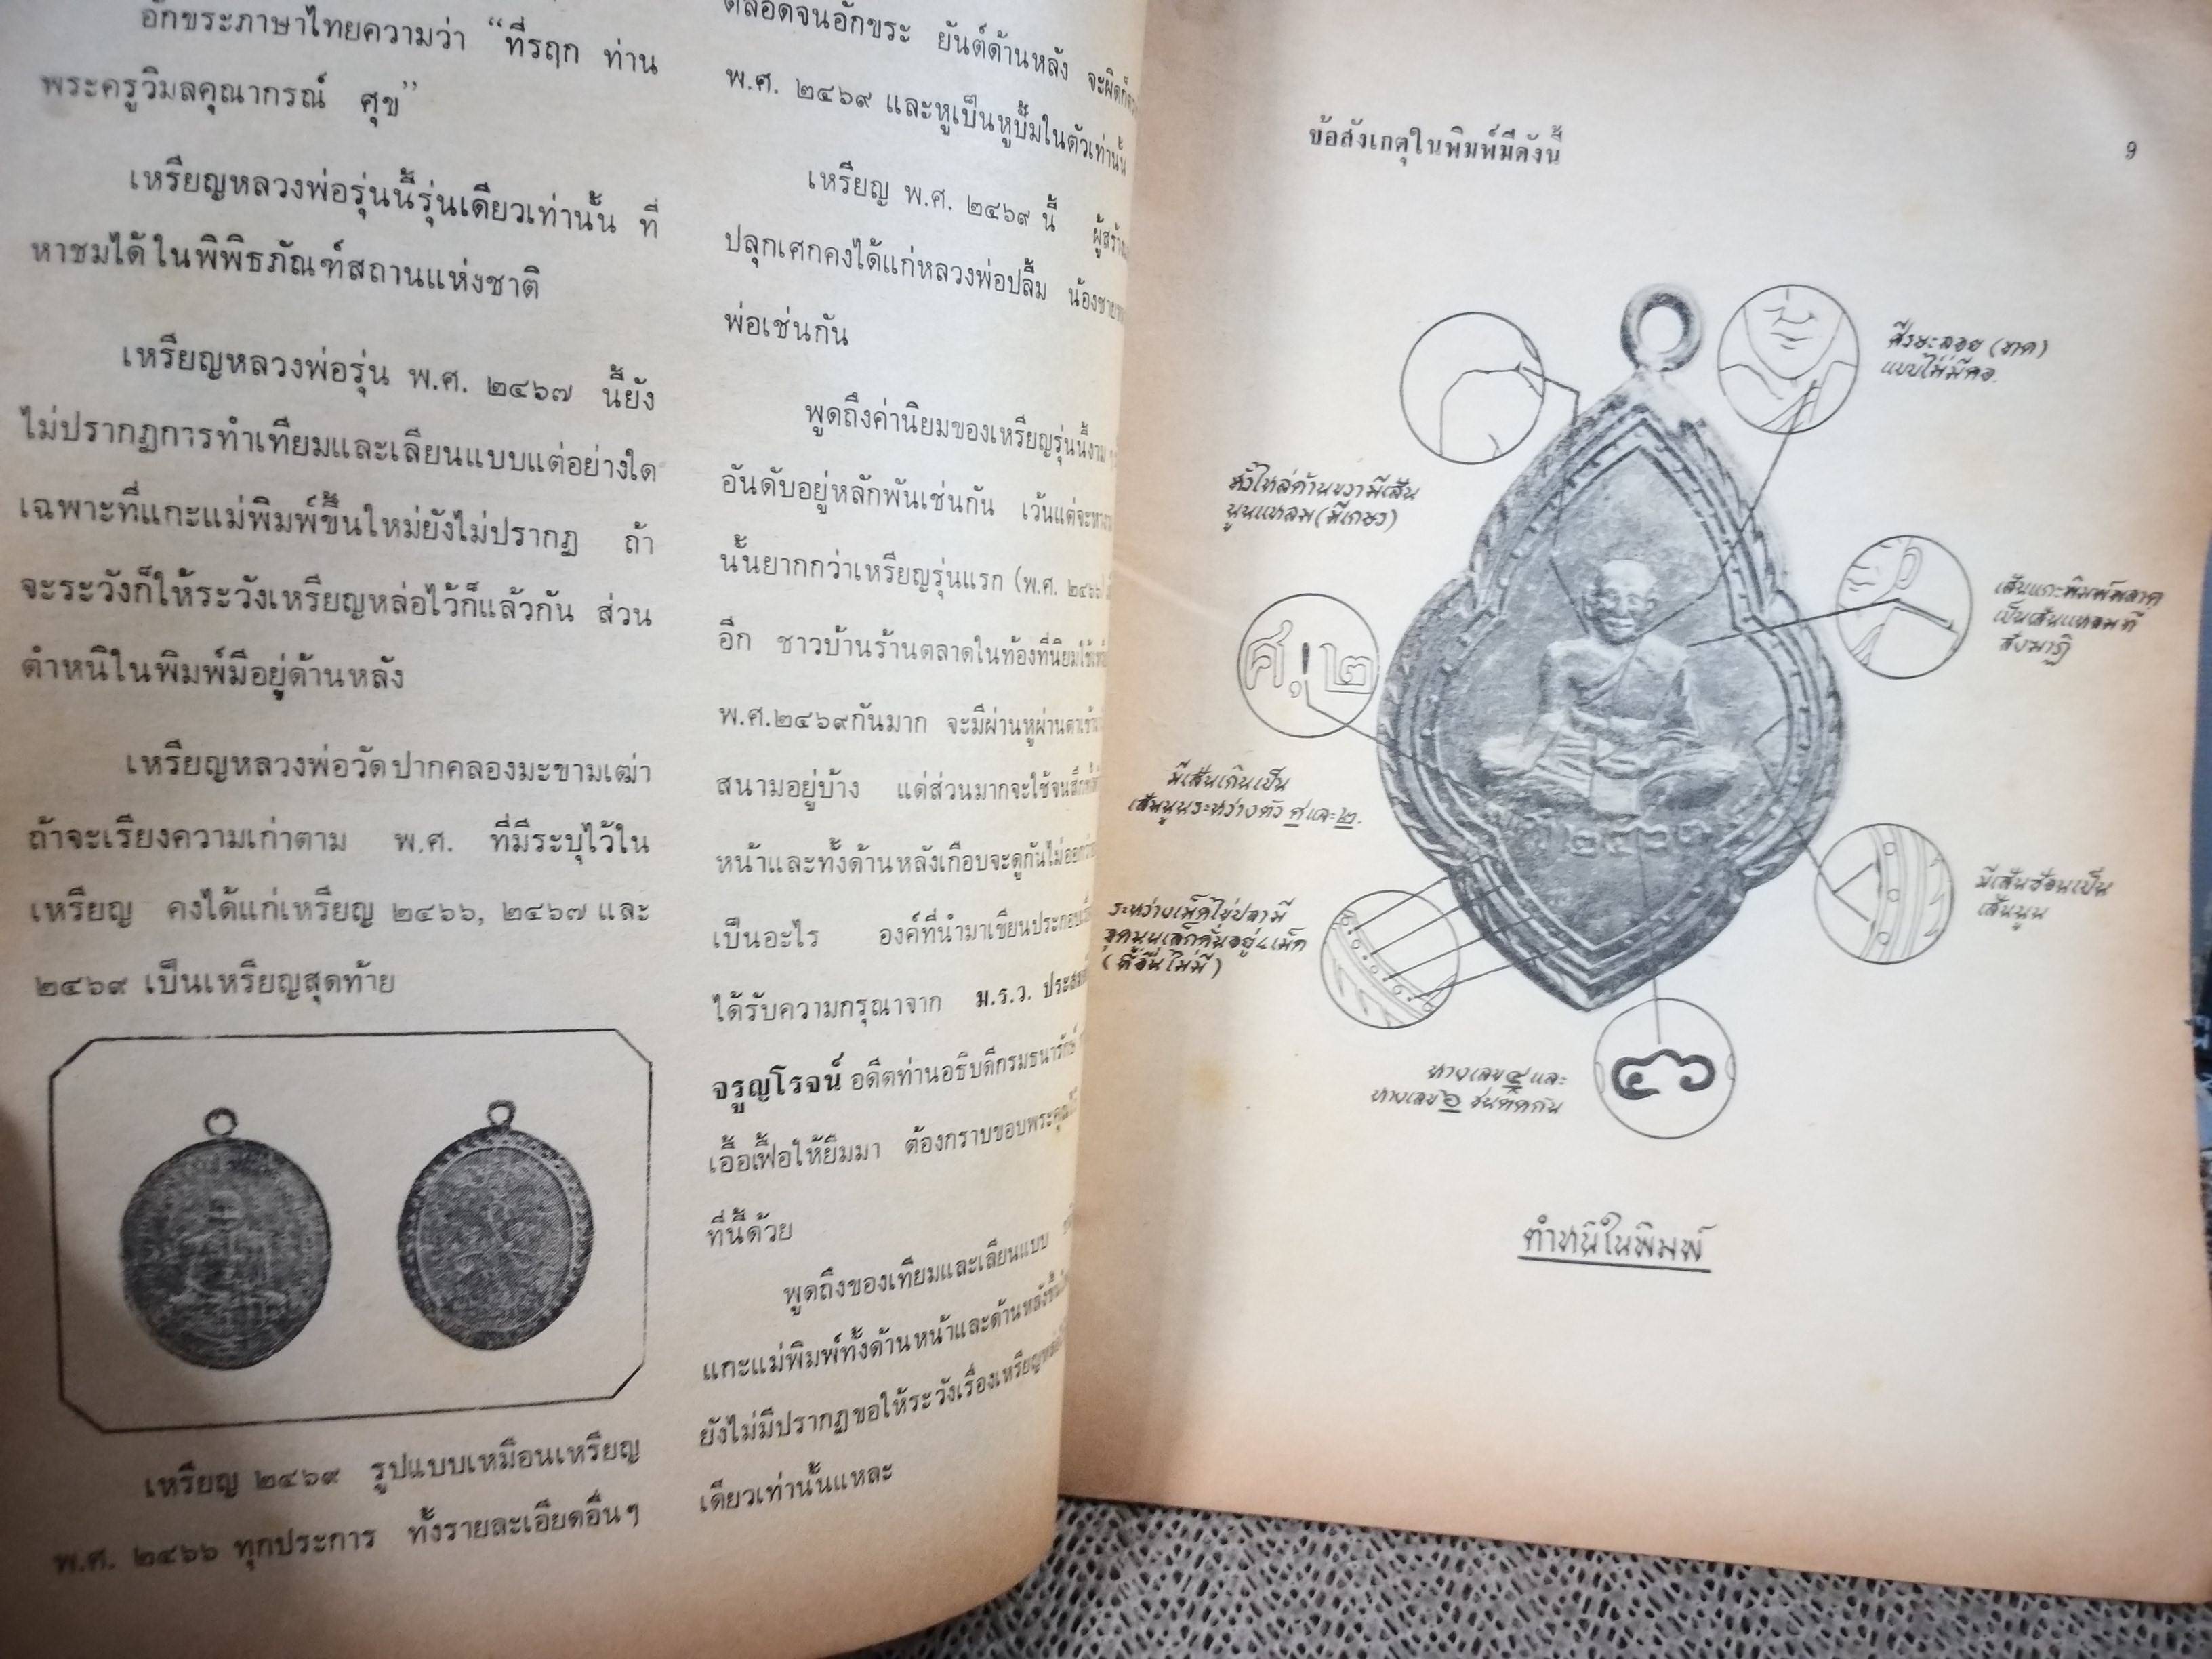 อักขระภาษาไทยความว่า “ที่รฤก ท่าน
พระครูวิมลคุณากรณ์ ศุข”
เหรียญหลวงพ่อรุ่นนี้รุ่นเดียวเท่านั้น ที่
หาชมได้ในพิพิธภัณฑ์สถานแห่งชาติ
เหรียญหลวงพ่อรุ่น พ.ศ. ๒๔๖๗ นี้ยัง
ไม่ปรากฏการทำเทียมและเลียนแบบแต่อย่างใด
เฉพาะที่แกะแม่พิมพ์ขึ้นใหม่ยังไม่ปรากฏ ถ้า
จะระวังก็ให้ระวังเหรียญหล่อไว้ก็แล้วกัน ส่วน
ตำหนิในพิมพ์มีอยู่ด้านหลัง
เหรียญหลวงพ่อวัดปากคลองมะขามเฒ่า
ถ้าจะเรียงความเก่าตาม พ.ศ. ที่มีระบุไว้ใน
เหรียญ คงได้แก่เหรียญ ๒๔๖๖, ๒๔๖๗ และ
๒๔๖๙ เป็นเหรียญสุดท้าย
เหรียญ ๒๔๖๙ รูปแบบเหมือนเหรียญ
พ.ศ. ๒๔๖๖ ทุกประการ ทั้งรายละเอียดอื่นๆ
ตลอดจนอักขระ ยันต์ด้านหลัง จะผิดก็
พ.ศ. ๒๔๖๙ และหูเป็นหูปั๊มในตัวเท่านั้น
เหรียญ พ.ศ. ๒๔๖๙ นี้ ผู้สร้าง
ปลุกเศกคงได้แก่หลวงพ่อปลื้ม น้องชาย
พ่อเช่นกัน
พูดถึงค่านิยมของเหรียญรุ่นนี้งาม
อันดับอยู่หลักพันเช่นกัน เว้นแต่จะหา
นั้นยากกว่าเหรียญรุ่นแรก (พ.ศ. ๒๔๖๖)
อีก ชาวบ้านร้านตลาดในท้องที่นิยมใช้
พ.ศ.๒๔๖๙กันมาก จะมีผ่านหูผ่านตาเข้า
สนามอยู่บ้าง แต่ส่วนมากจะใช้จนสึก
หน้าและทั้งด้านหลังเกือบจะดูกันไม่ออก
เป็นอะไร องค์ที่นำมาเขียนประกอบ
ได้รับความกรุณาจาก ม.ร.ว.
จรูญโรจน์ อดีตท่านอธิบดีกรมธนารักษ์
เอื้อเฟื้อให้ยืมมา ต้องกราบขอบพระคุณไว้
ที่นี้ด้วย
พูดถึงของเทียมและเลียนแบบ
แกะแม่พิมพ์ทั้งด้านหน้าและด้านหลังขึ้น
ยังไม่มีปรากฏขอให้ระวังเรื่องเหรียญหล่อ
เดียวเท่านั้นแหละ
ข้อสังเกตุในพิมพ์มีดังนี้
9
ศีรษะลอย (ขาด)
แบบไม่มีคอ.
หัวไหล่ด้านขวามีเส้น
นูนแหลม (มีเกษร)
เส้นแกะพิมพ์พลาด
เป็นเส้นแหลมที่
สังฆาฏิ
ศ.! ๒
มีเส้นเกินเป็น
เส้นนูนระหว่างตัว ศ และ ๒.
มีเส้นซ้อนเป็น
เส้นนูน
ระหว่างเม็ดไข่ปลามี
จุดนูนเล็กคั่นอยู่ ๔ เม็ด
(ที่อื่นไม่มี)
๔๖
หางเลข ๔ และ
หางเลข ๖ ชนติดกัน
ตำหนิในพิมพ์